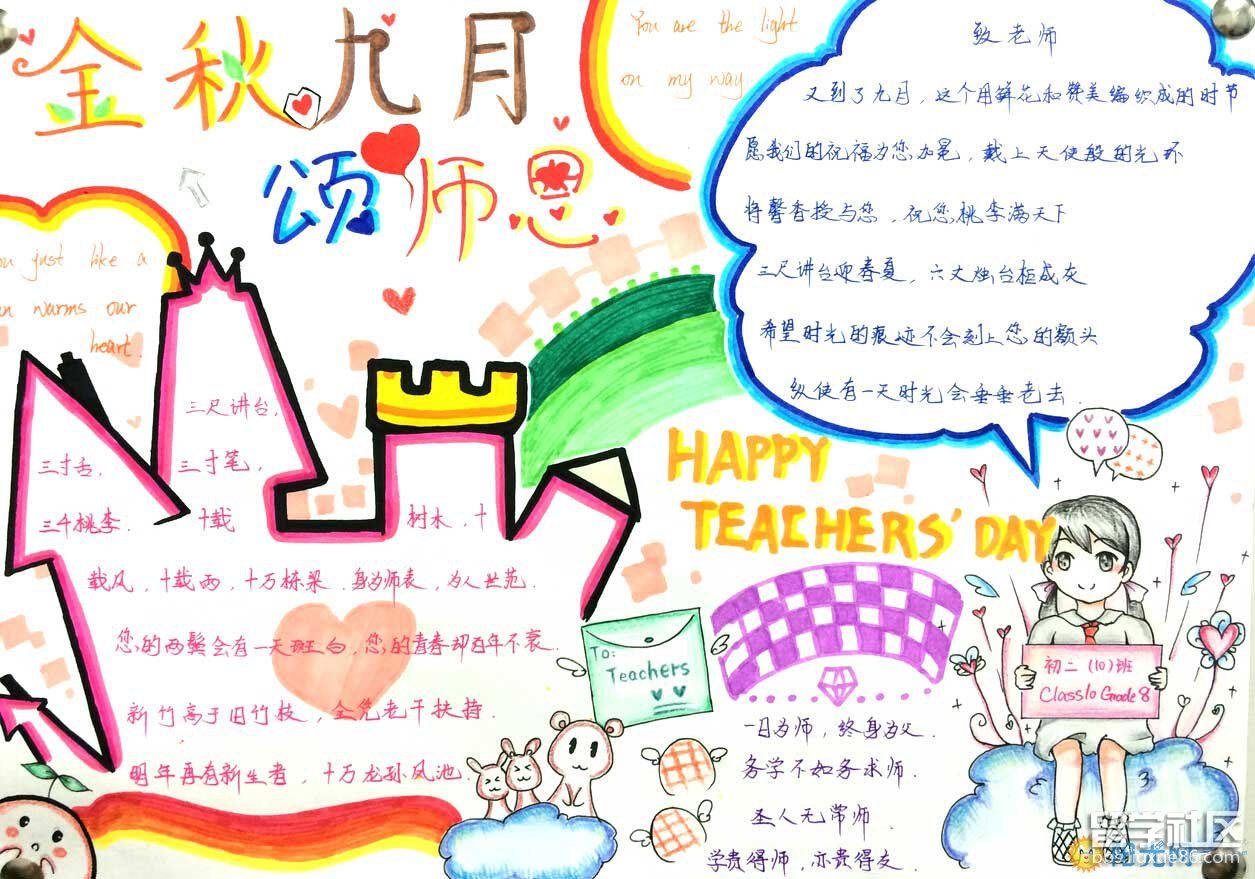 金秋九月
颂师恩
You are the light
on my way
ou just like a
n warms our
heart.
致老师
又到了九月，这个用鲜花和赞美编织成的时节
愿我们的祝福为您加冕，戴上天使般的光环
将馨香授与您，祝您桃李满天下
三尺讲台迎春夏，六丈烛台柜成灰
希望时光的痕迹不会刻上您的额头
纵使有一天时光会垂垂老去.
三尺讲台,
三寸舌, 三寸笔,
三千桃李. 十载 树木,十
载风,十载雨,十万栋梁.身为师表,为人世范.
您的两鬓会有一天斑白,您的青春却百年不衰.
新竹高于旧竹枝,全凭老干扶持.
明年再有新生者,十万龙孙凤池.
HAPPY
TEACHERS' DAY
To:
Teachers
初二(10)班
Class10 Grade8
一日为师，终身为父.
务学不如务求师.
圣人无常师.
学贵得师，亦贵得友.
留学社区
bbs.liuxue86.com